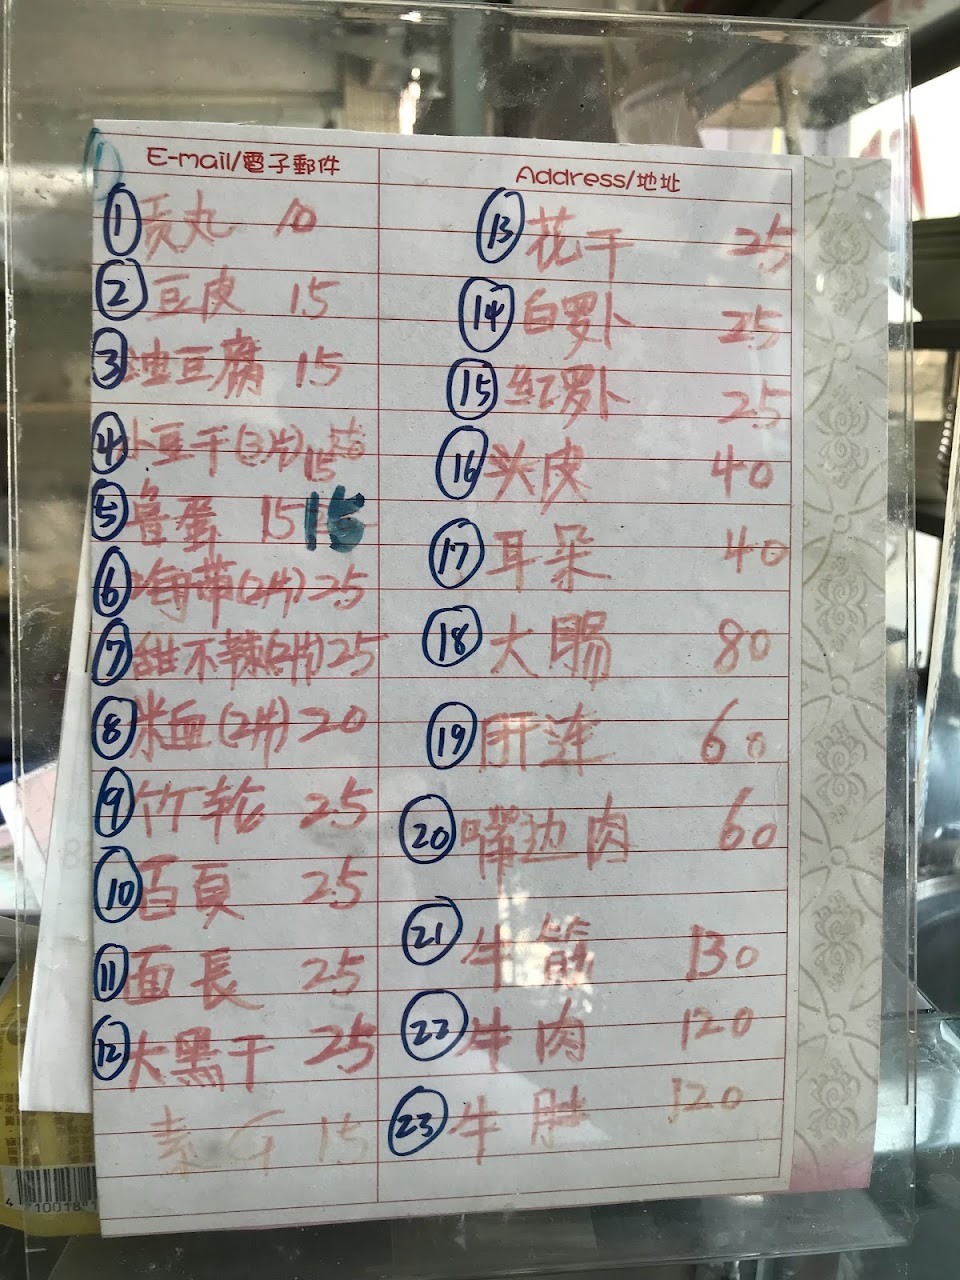 E-mail/電子郵件
① 贡丸 10
② 豆皮 15
③ 油豆腐 15
④ 小豆干(3片) 15
⑤ 魯蛋 15 15
⑥ 海带(2片) 25
⑦ 甜不辣(2片) 25
⑧ 米血(2片) 20
⑨ 竹輪 25
⑩ 百頁 25
⑪ 面長 25
⑫ 大黑干 25
素G 15
Address/地址
⑬ 花干 25
⑭ 白罗卜 25
⑮ 红罗卜 25
⑯ 头皮 40
⑰ 耳朵 40
⑱ 大腸 80
⑲ 肝连 60
⑳ 嘴边肉 60
㉑ 牛筋 130
㉒ 牛肉 120
㉓ 牛肚 120